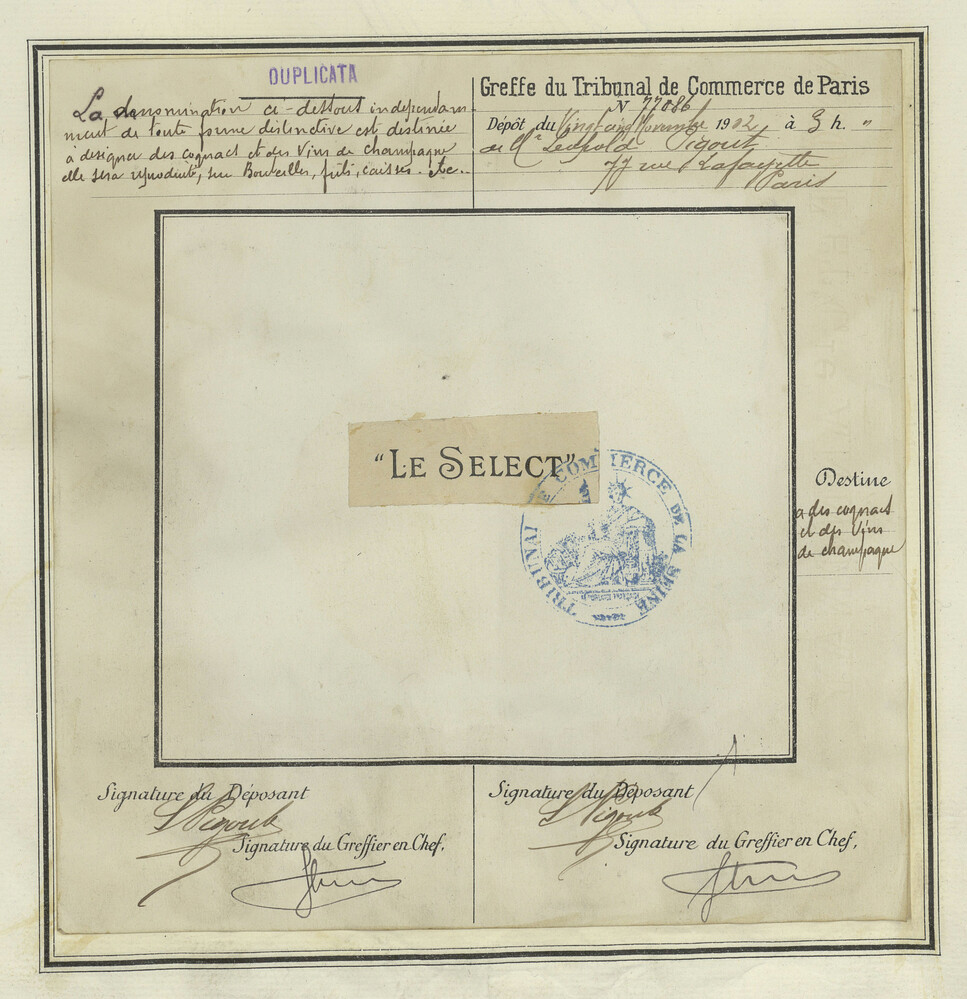 DUPLICATA
La denomination ci-dessous independam-
ment de toute forme distinctive est destinée
à designer des cognacs et des Vins de champagne
elle sera reproduite, sur Bouteilles, fûts, caisses. etc..
Greffe du Tribunal de Commerce de Paris
N° 77086
Dépôt du Vingt cinq Novembre 1902 à 3 h. "
de Mr Léopold Pigout
77 rue Lafayette
Paris
"LE SELECT"
TRIBUNAL DE COMMERCE DE LA SEINE
Destine
a des cognacs
et des Vins
de champagne
Signature du Déposant
L Pigout
Signature du Greffier en Chef,
Signature du Déposant
L Pigout
Signature du Greffier en Chef,